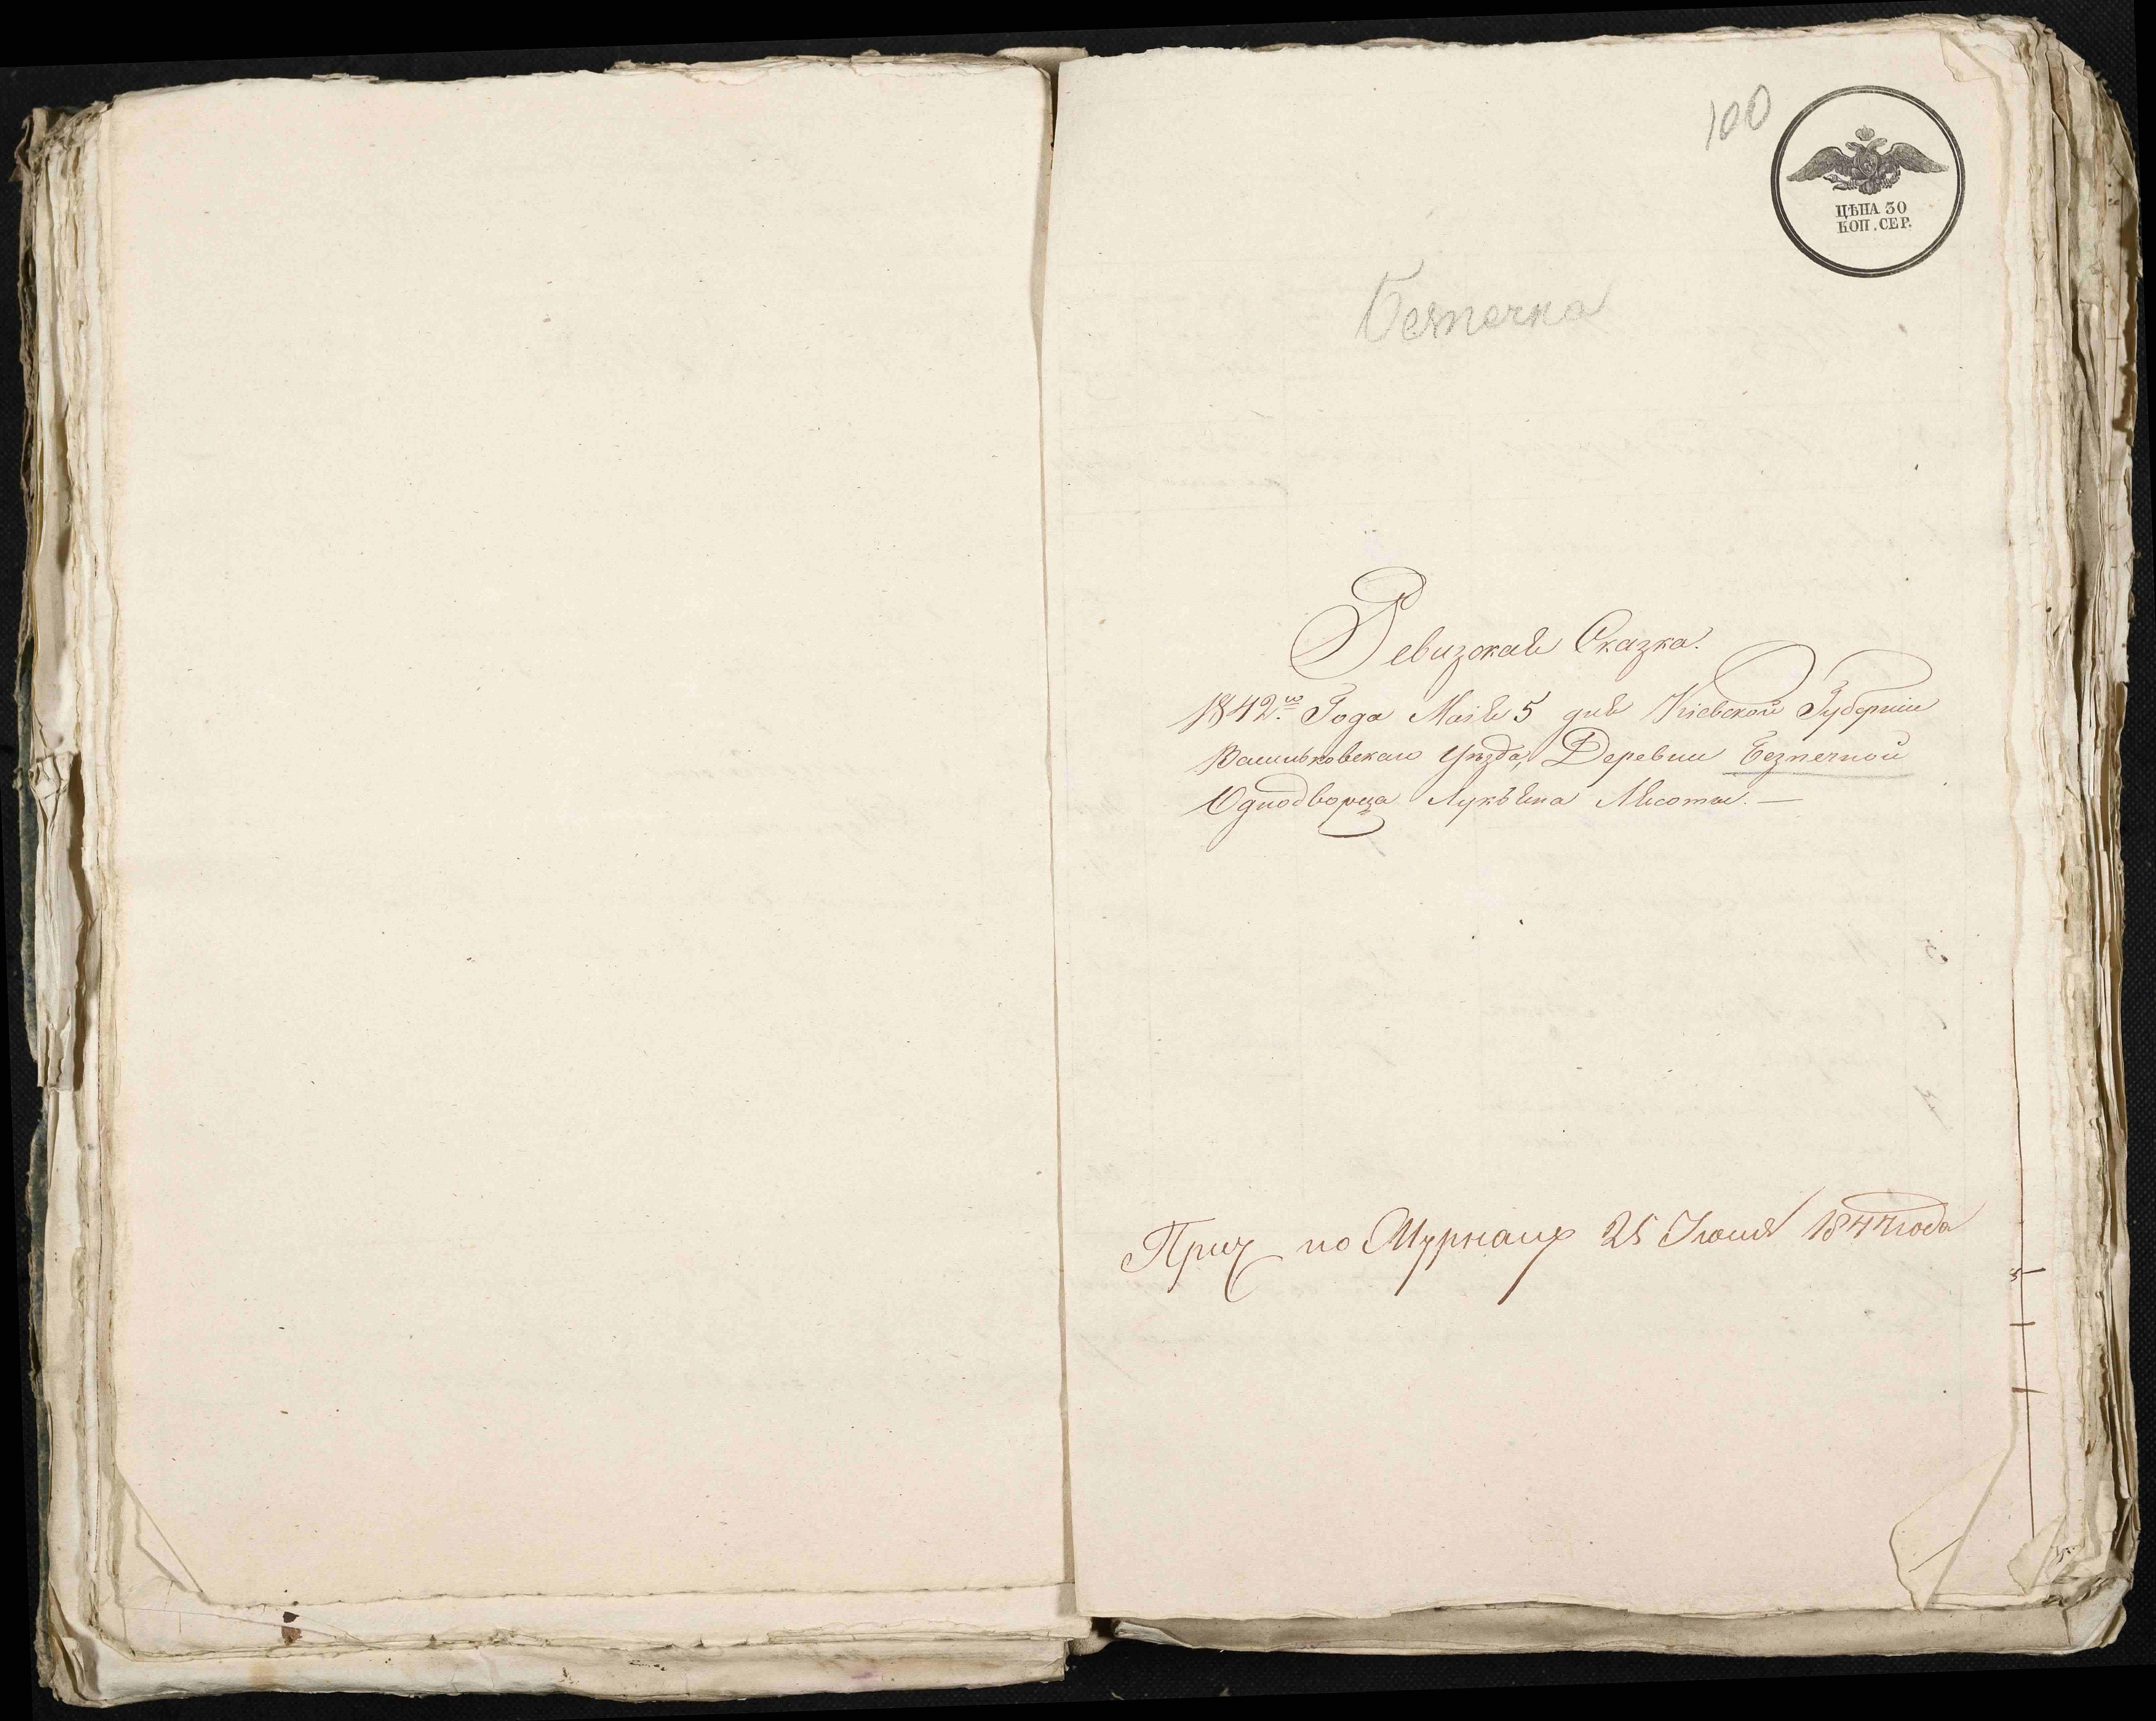 100
ЦѢНА 30
КОП. СЕР.
Безпечна
Ревизская Сказка.
1842го Года Маія 5 дня Кіевской Губерніи
Васильковскаго Уѣзда, Деревни Безпечной
Однодворца Лукьяна Лисоты. —
по Журналу 25 Іюля 1844 года